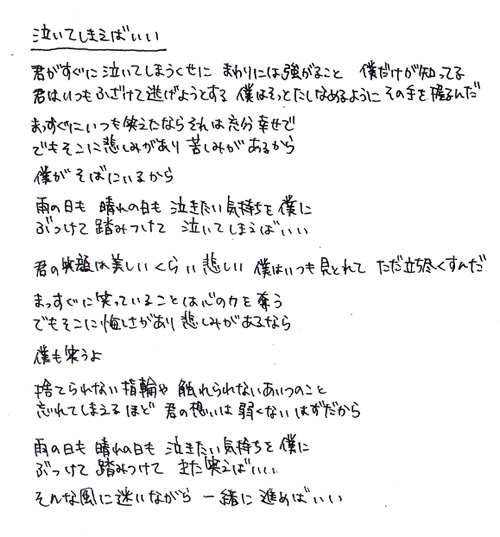 泣いてしまえばいい
君がすぐに泣いてしまうくせに まわりには強がること 僕だけが知ってる
君はいつもふざけて逃げようとする 僕はそっとたしなめるように その手を握るんだ
まっすぐにいつも笑えたなら それは充分幸せで
でもそこに悲しみがあり 苦しみがあるから
僕がそばにいるから
雨の日も 晴れの日も 泣きたい気持ちを僕に
ぶつけて 踏みつけて 泣いてしまえばいい
君の笑顔は美しいくらい悲しい 僕はいつも見とれて ただ立ち尽くすんだ
まっすぐに笑っていることは心の力を奪う
でもそこに悔しさがあり 悲しみがあるなら
僕も笑うよ
捨てられない指輪や 触れられないあいつのこと
忘れてしまえるほど 君の想いは弱くないはずだから
雨の日も 晴れの日も 泣きたい気持ちを僕に
ぶつけて 踏みつけて また笑えばいい
そんな風に迷いながら 一緒に進めばいい